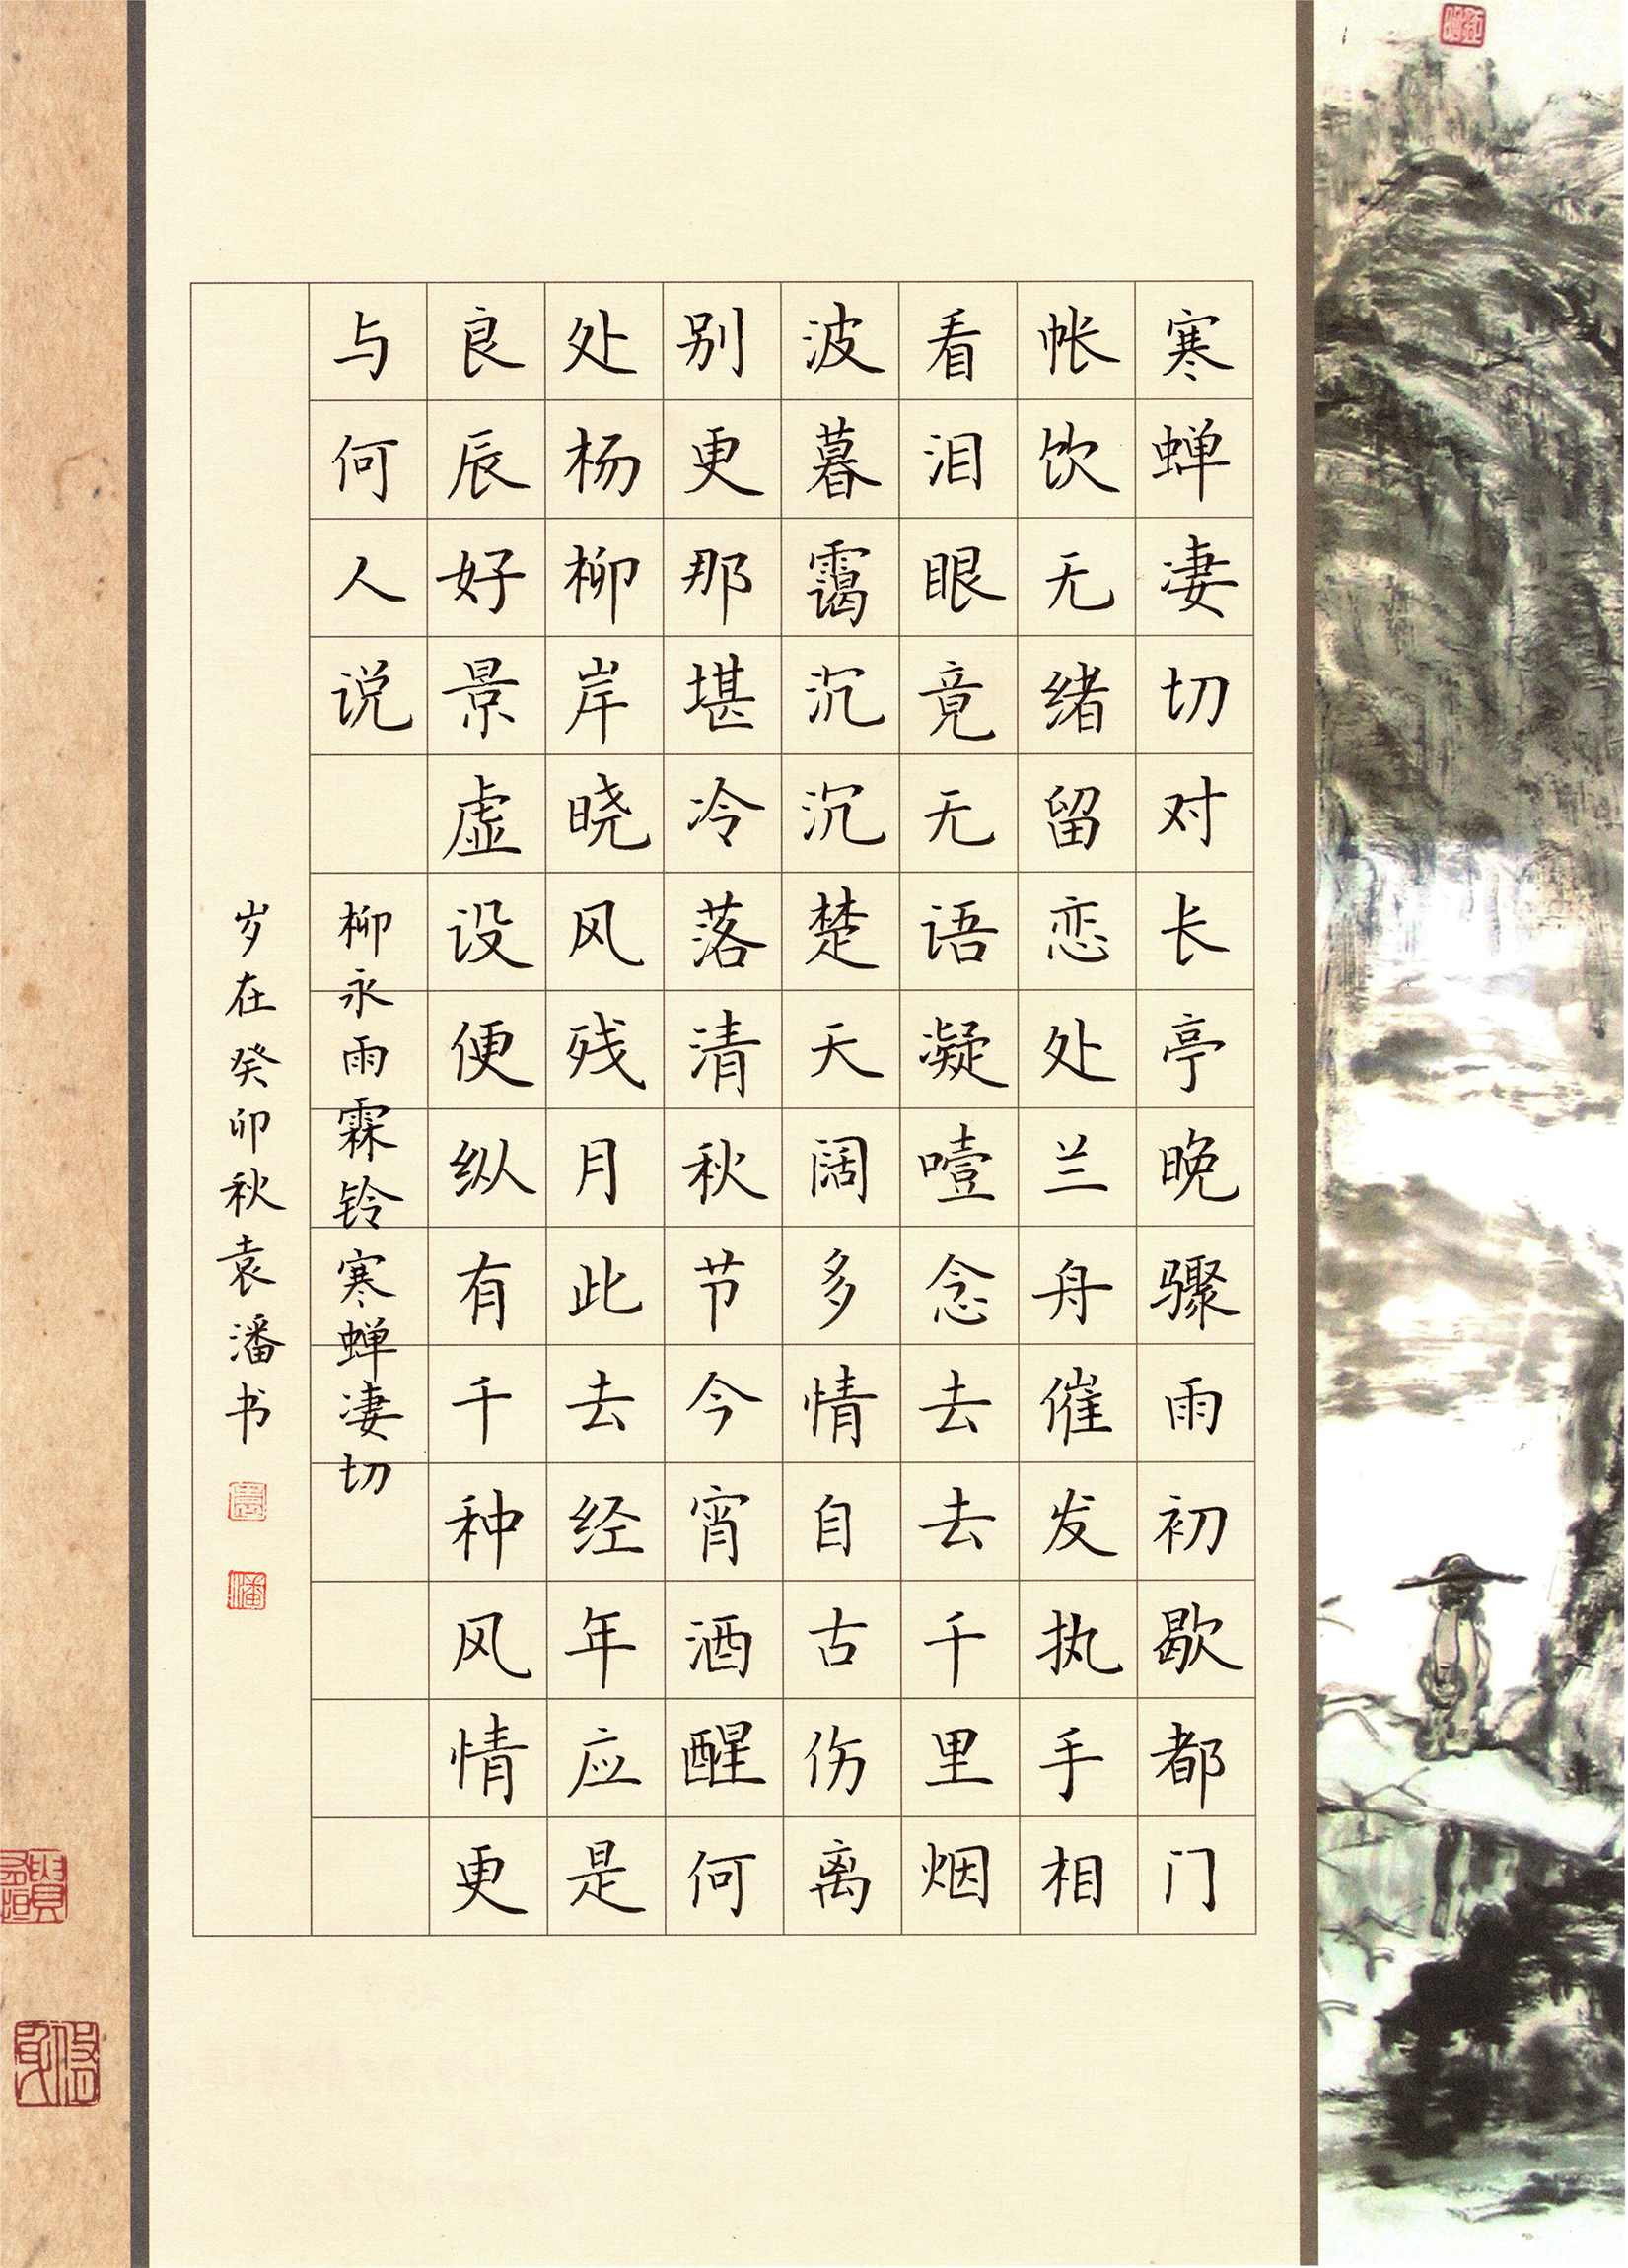 寒蝉凄切对长亭晚骤雨初歇都门
帐饮无绪留恋处兰舟催发执手相
看泪眼竟无语凝噎念去去千里烟
波暮霭沉沉楚天阔多情自古伤离
别更那堪冷落清秋节今宵酒醒何
处杨柳岸晓风残月此去经年应是
良辰好景虚设便纵有千种风情更
与何人说
柳永雨霖铃寒蝉凄切
岁在癸卯秋袁潘书